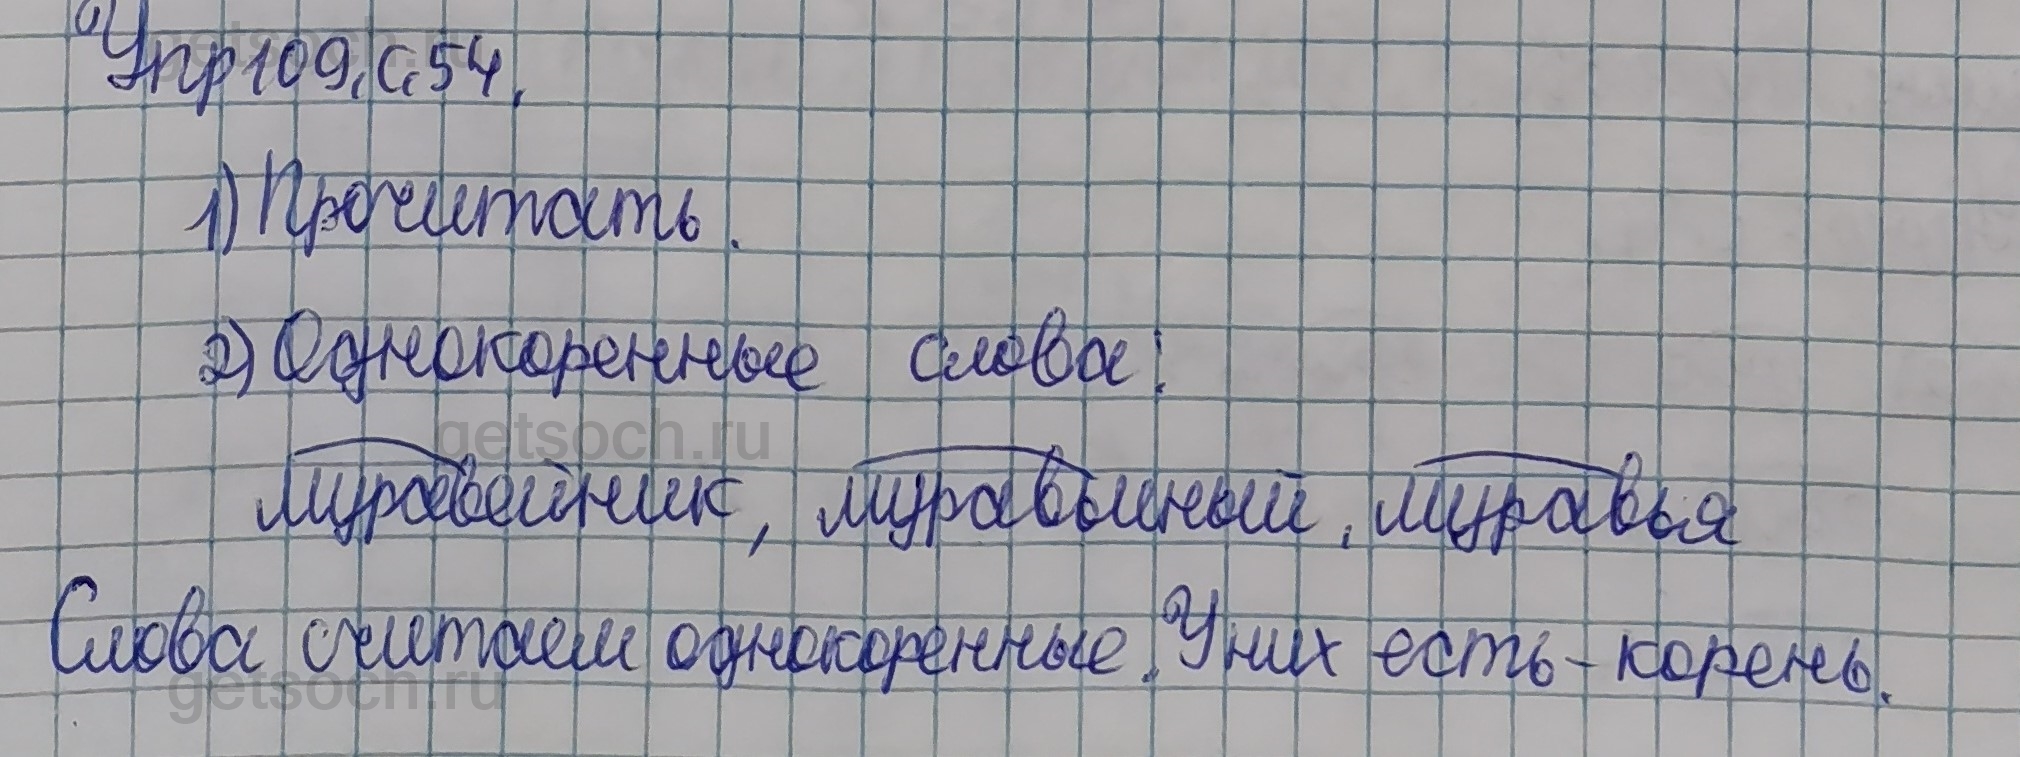 Упр109, с. 54.
1) Прочитать.
2) Однокоренные слова:
муравейник, муравьиный, муравья
Слова считаем однокоренные. У них есть - корень.
getsoch.ru
getsoch.ru
getsoch.ru